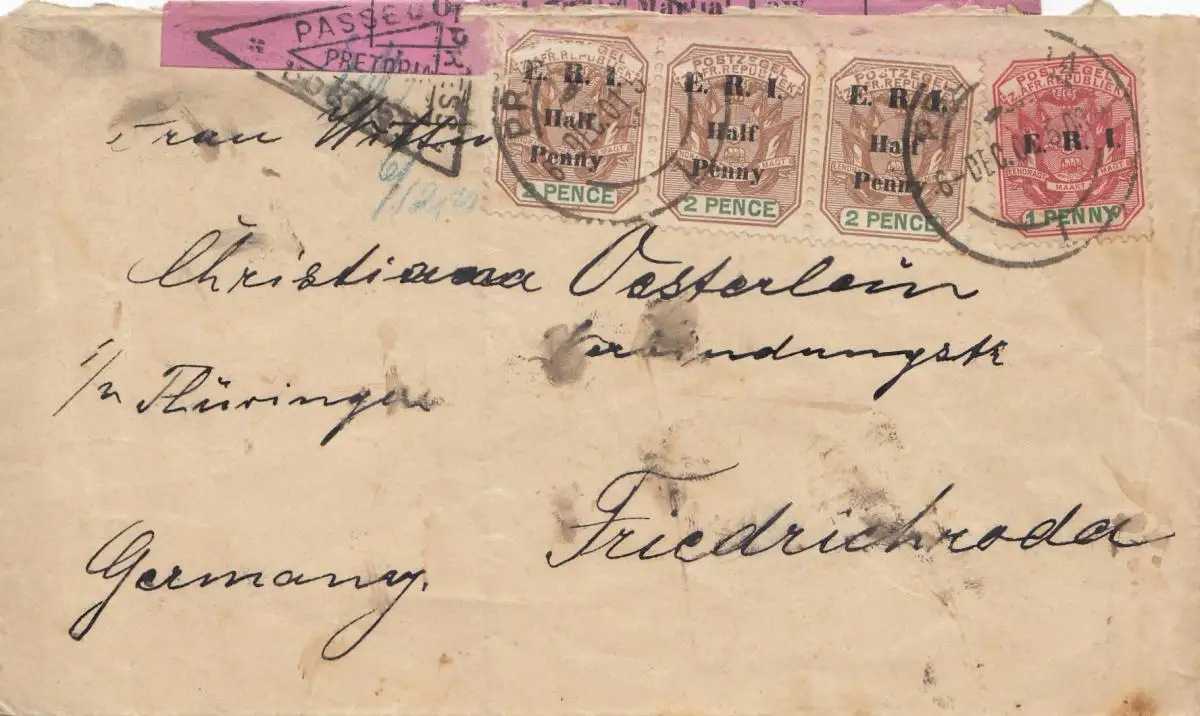 Opened under Martial Law
PASSED PRESS
PRETORIA
POSTZEGEL
Z.AFR.REPUBLIEK
E. R. I.
Half
Penny
2 PENCE
POSTZEGEL
Z.AFR.REPUBLIEK
E. R. I.
Half
Penny
EENDRAGT MAAKT MAGT
2 PENCE
POSTZEGEL
Z.AFR.REPUBLIEK
E. R. I.
Half
Penny
EENDRAGT MAAKT MAGT
2 PENCE
POSTZEGEL
Z.AFR.REPUBLIEK
E. R. I.
EENDRAGT MAAKT MAGT
1 PENNY
6 DEC.01
6-DEC.01
Frau
Christiana Oesterlein
Verbindungstr
i/n Thüringen
Friedrichroda
Germany.